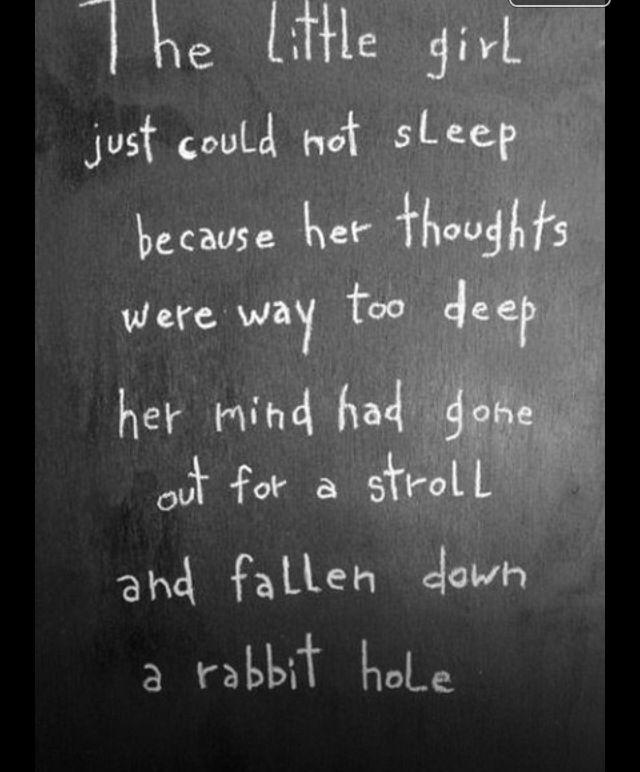 The little girl
just could not sleep
because her thoughts
were way too deep
her mind had gone
out for a stroll
and fallen down
a rabbit hole